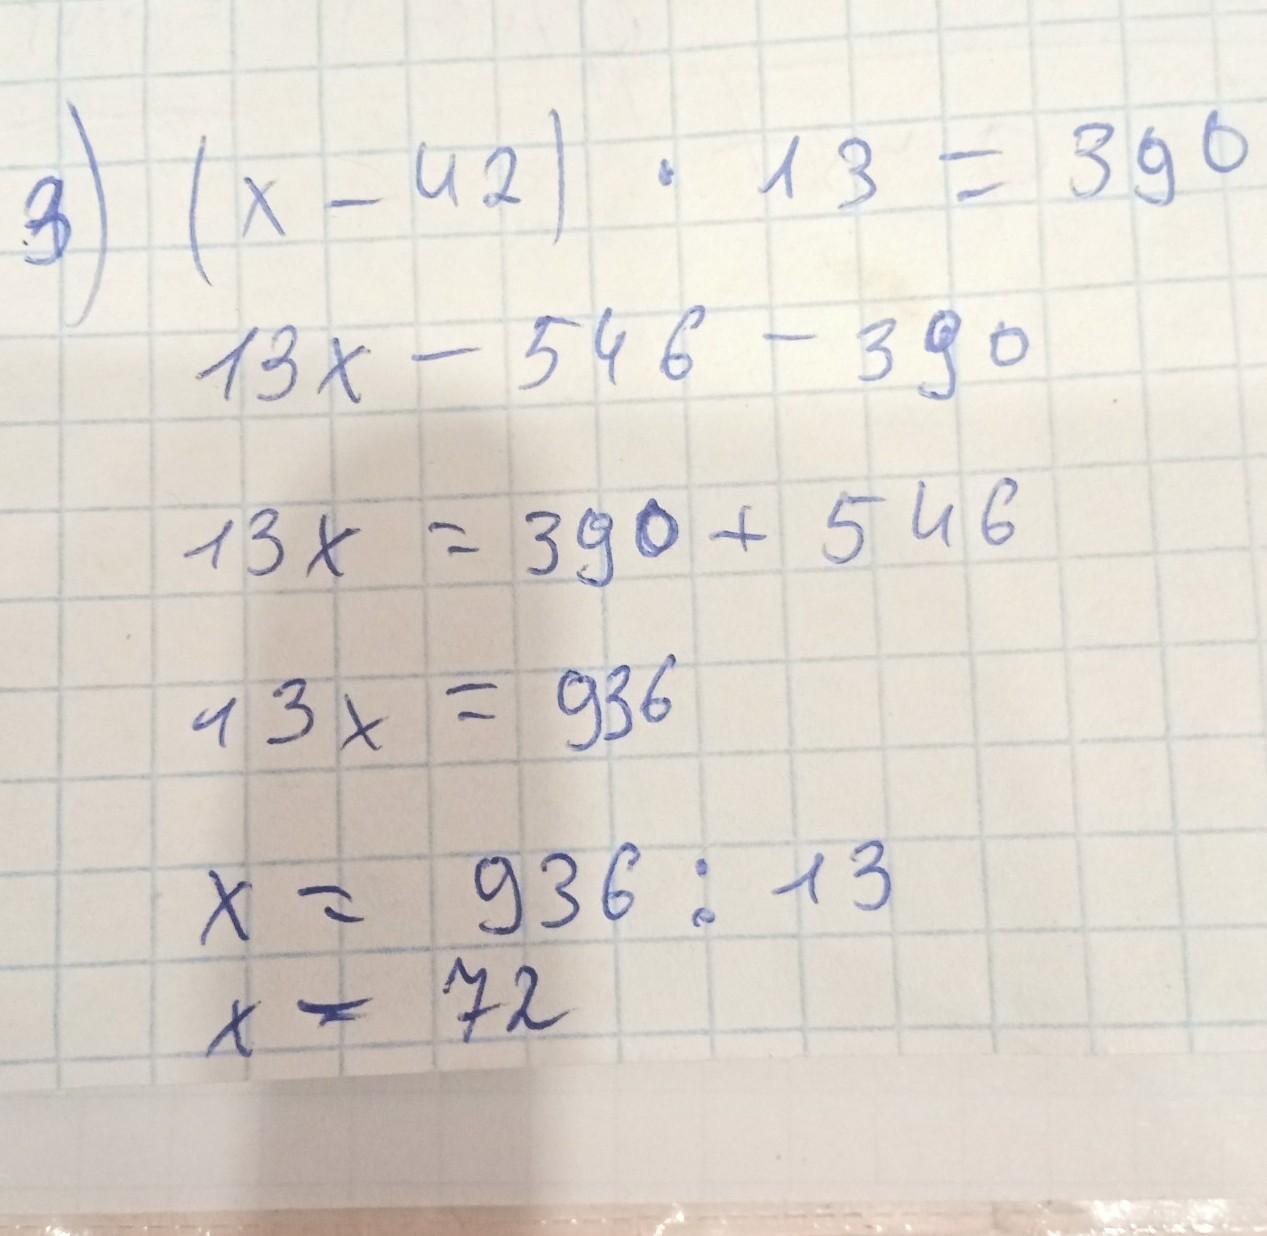 3) (x - 42) · 13 = 390
13x - 546 - 390
13x = 390 + 546
13x = 936
x = 936 : 13
x = 72